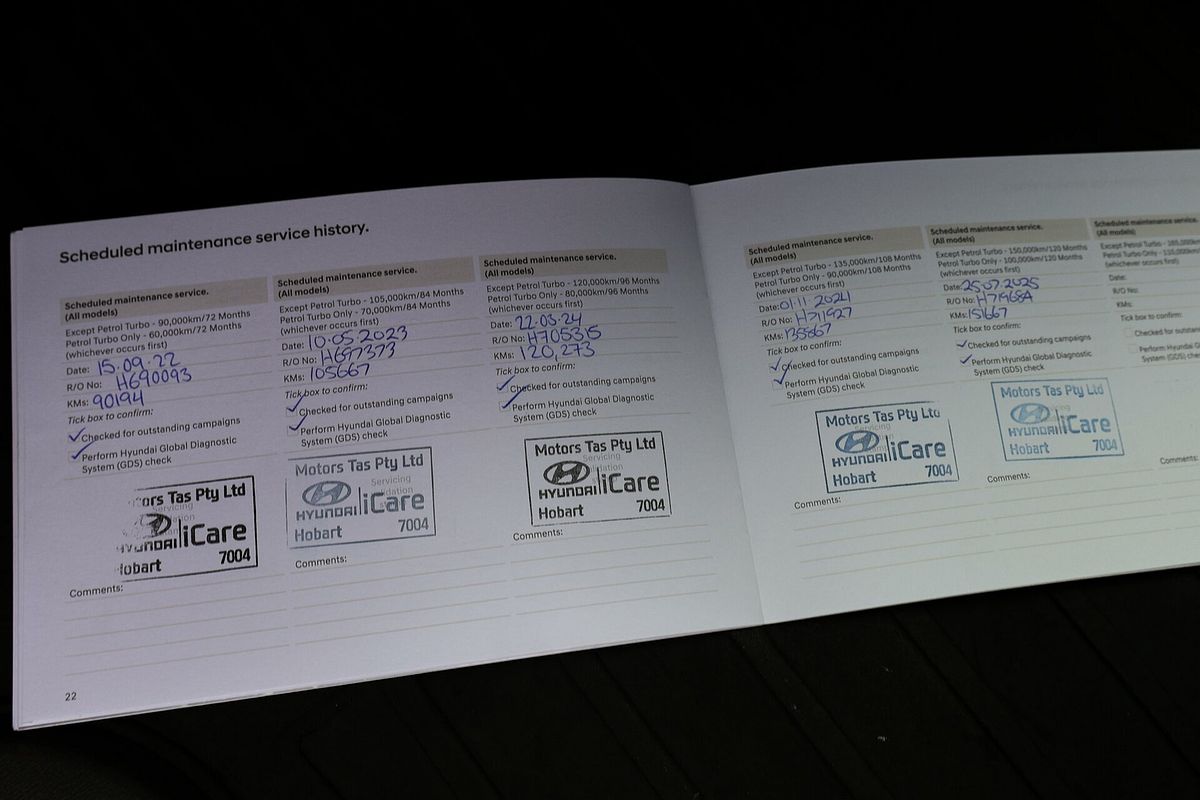 Scheduled maintenance service history.
Scheduled maintenance service.
(All models)
Except Petrol Turbo - 90,000km/72 Months
Petrol Turbo Only - 60,000km/72 Months
(whichever occurs first)
Date: 15.09.22
R/O No: H690093
KMs: 90194
Tick box to confirm:
Checked for outstanding campaigns
Perform Hyundai Global Diagnostic
System (GDS) check
Servicing
tors Tas Pty Ltd
HYUNDAI iCare
Hobart 7004
Comments:
Scheduled maintenance service.
(All models)
Except Petrol Turbo - 105,000km/84 Months
Petrol Turbo Only - 70,000km/84 Months
(whichever occurs first)
Date: 10.05.2023
R/O No: H697373
KMs: 105667
Tick box to confirm:
Checked for outstanding campaigns
Perform Hyundai Global Diagnostic
System (GDS) check
Motors Tas Pty Ltd
Servicing
HYUNDAI iCare
Hobart 7004
Comments:
Scheduled maintenance service.
(All models)
Except Petrol Turbo - 120,000km/96 Months
Petrol Turbo Only - 80,000km/96 Months
(whichever occurs first)
Date: 22.03.24
R/O No: H705315
KMs: 120,273
Tick box to confirm:
Checked for outstanding campaigns
Perform Hyundai Global Diagnostic
System (GDS) check
Motors Tas Pty Ltd
Servicing
HYUNDAI iCare
Hobart 7004
Comments:
22
Scheduled maintenance service.
(All models)
Except Petrol Turbo - 135,000km/108 Months
Petrol Turbo Only - 90,000km/108 Months
(whichever occurs first)
Date: 01.11.2024
R/O No: H711927
KMs: 135667
Tick box to confirm:
Checked for outstanding campaigns
Perform Hyundai Global Diagnostic
System (GDS) check
Motors Tas Pty Ltd
Servicing
HYUNDAI iCare
Hobart 7004
Comments:
Scheduled maintenance service.
(All models)
Except Petrol Turbo - 150,000km/120 Months
Petrol Turbo Only - 100,000km/120 Months
(whichever occurs first)
Date: 25.07.2025
R/O No:
KMs: 151667
Tick box to confirm:
Checked for outstanding campaigns
Perform Hyundai Global Diagnostic
System (GDS) check
Motors Tas Pty Ltd
HYUNDAI iCare
Hobart 7004
Comments:
Scheduled maintenance service.
(All models)
Except Petrol Turbo
Petrol Turbo Only
(whichever occurs first)
Date:
R/O No:
KMs:
Tick box to confirm:
Checked for outstanding
Perform Hyundai
System (GDS) check
Comments: